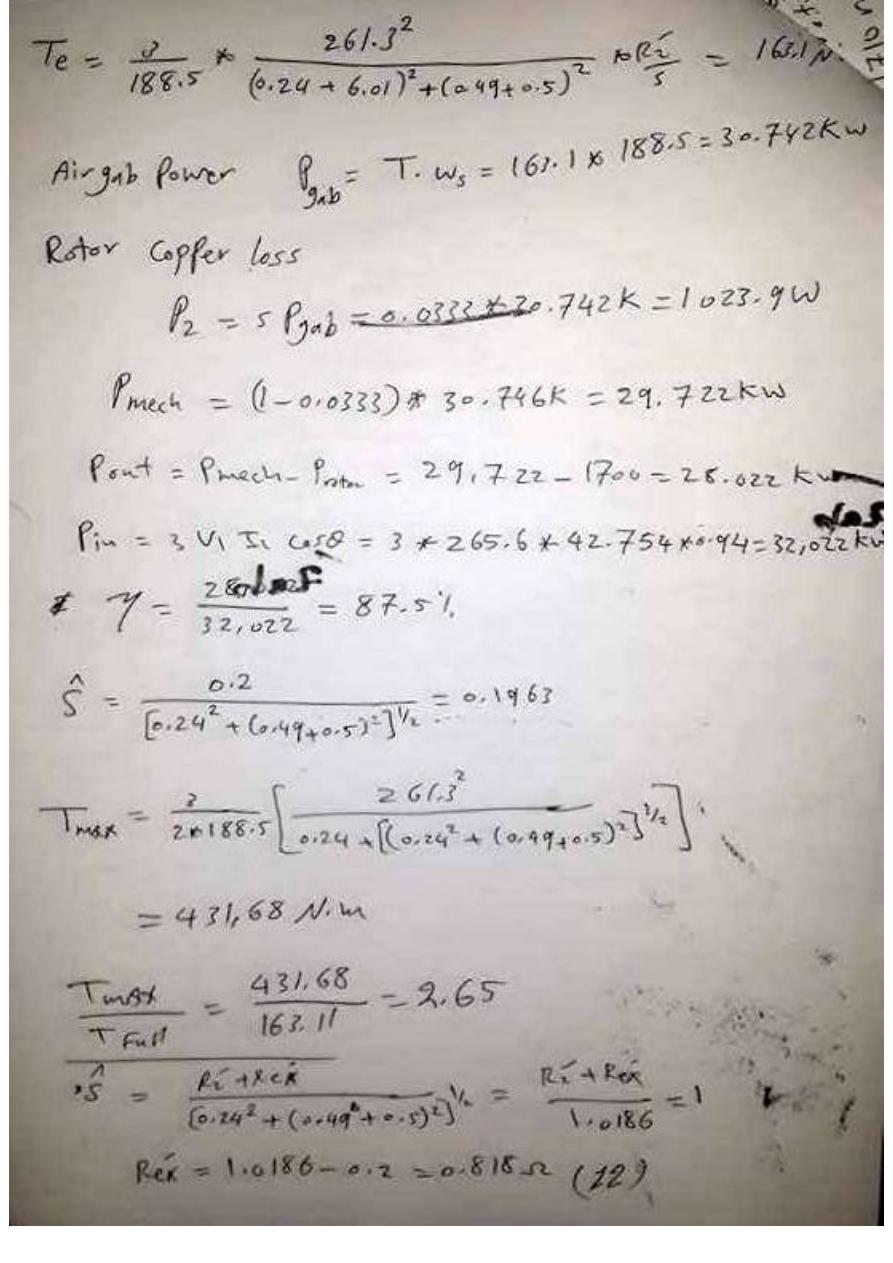 Te = 3/188.5 * 261.3²/((0.24 + 6.01)² + (0.49 + 0.5)²) * R₂́/s = 163.1 N.
Air gab Power P_gab = T. w_s = 163.1 * 188.5 = 30.742 Kw
Rotor Copper loss
P₂ = s P_gab = 0.0333 * 30.742K = 1023.9 W
P_mech = (1 - 0.0333) * 30.746K = 29.722 KW
Pout = Pmech - Protor = 29.722 - 1700 = 28.022 Kw
Pin = 3 V₁ I₁ cosθ = 3 * 265.6 * 42.754 * 0.94 = 32,022 kw
η = /32,022 = 87.5 %
ŝ = 0.2/[0.24² + (0.49 + 0.5)²]^1/2 = 0.1963
Tmax = 3/(2*188.5) [261.3²/(0.24 + [(0.24² + (0.49 + 0.5)²]^1/2]
= 431,68 N.m
Tmax/T Full = 431.68/163.11 = 2.65
ŝ = (R₂́ + ReX́)/[0.24² + (0.49² + 0.5)²]^1/2 = (R₂́ + ReX́)/1.0186 = 1
ReX́ = 1.0186 - 0.2 = 0.818 Ω (12)